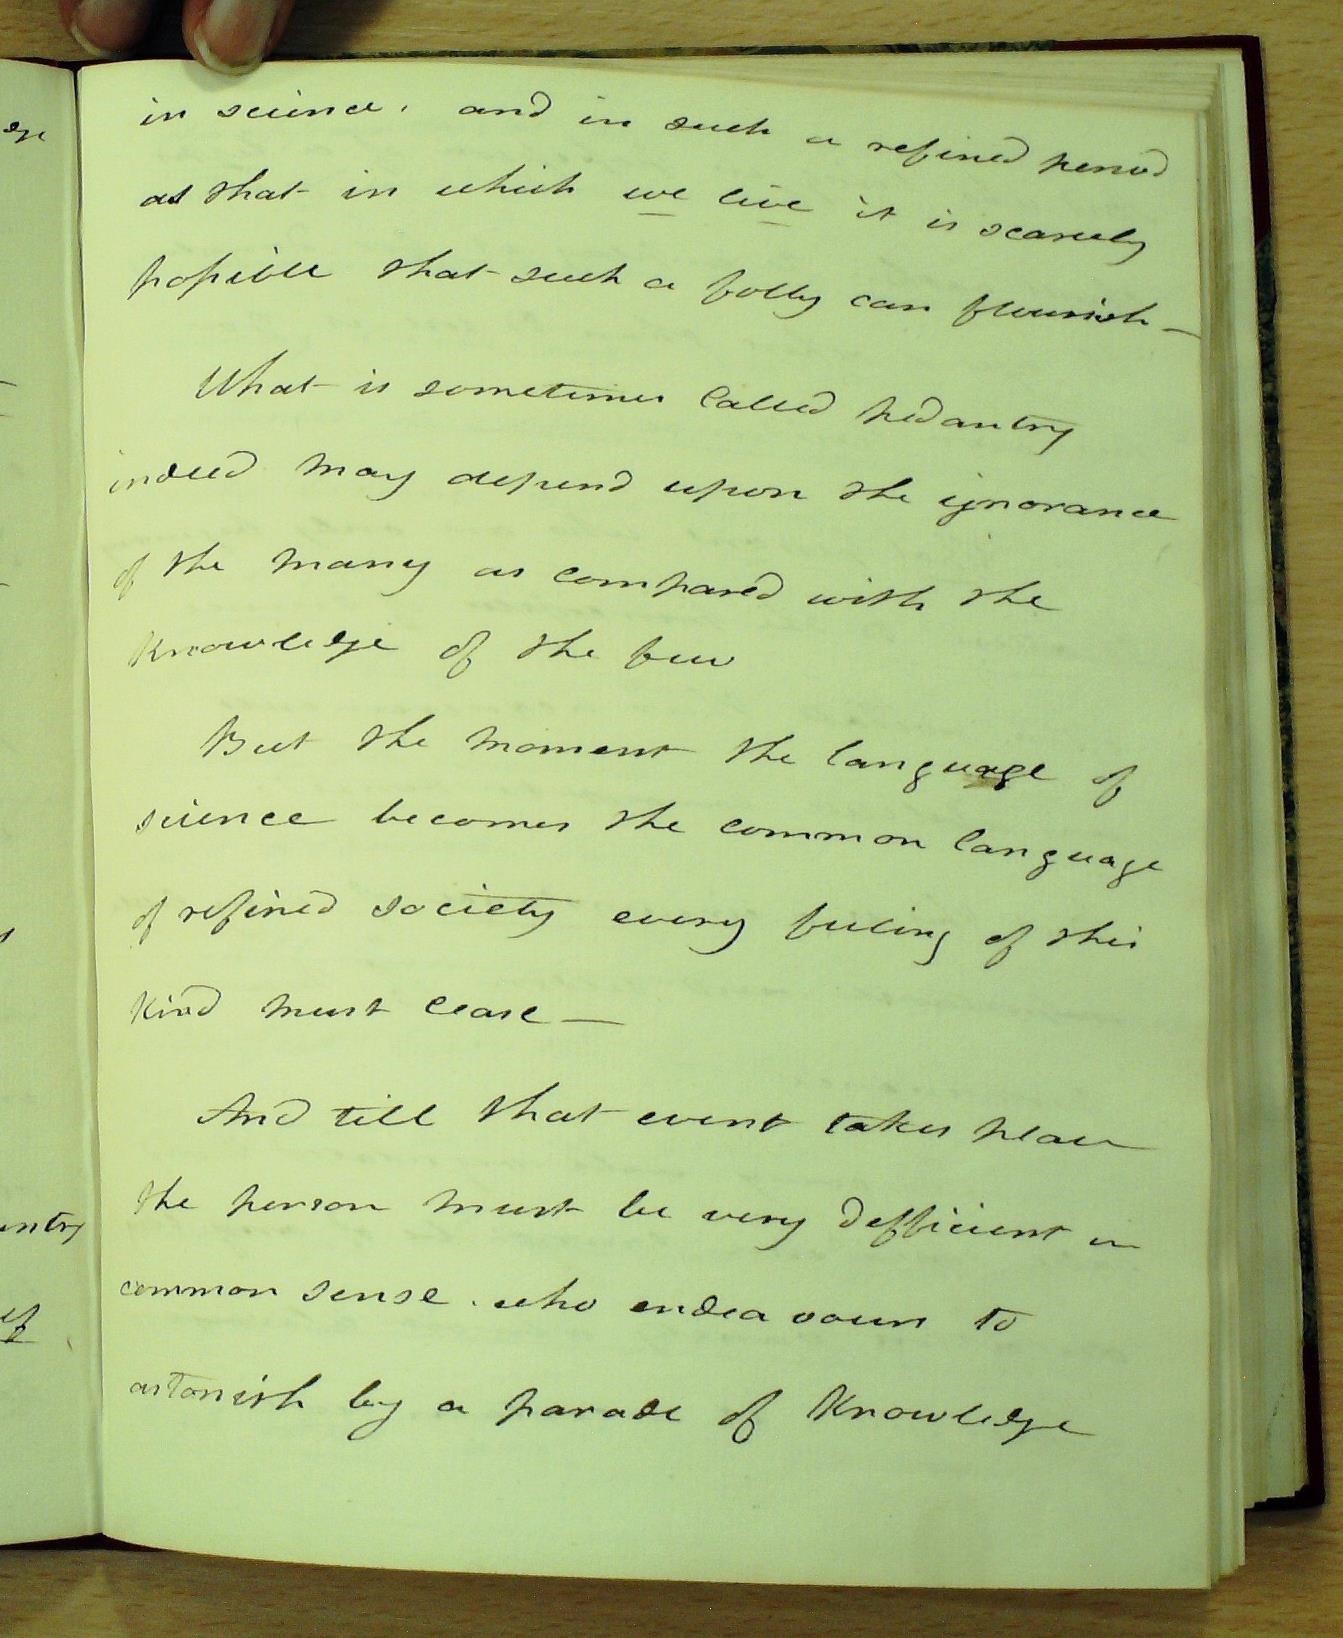 in science. and in such a refined period
as that in which we live it is scarcely
possible that such a folly can flourish —
What is sometimes called pedantry
indeed may depend upon the ignorance
of the many as compared with the
Knowledge of the few
But the moment the language of
science becomes the common language
of refined society every feeling of this
Kind must cease —
And till that event takes place
the person must be very defficient in
common sense. who endeavours to
astonish by a parade of Knowledge